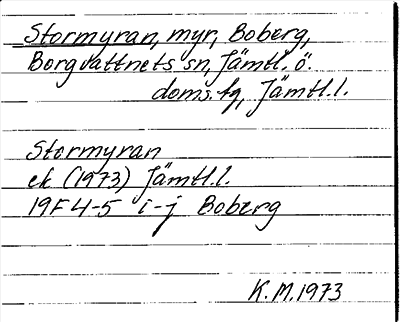 Stormyran, myr, Boberg,
Borgvattnets sn, Jämtl. ö.
doms. tg, Jämtl. l.
Stormyran
ek (1973) Jämtl. l.
19F 4-5 i-j Boberg
K. M. 1973